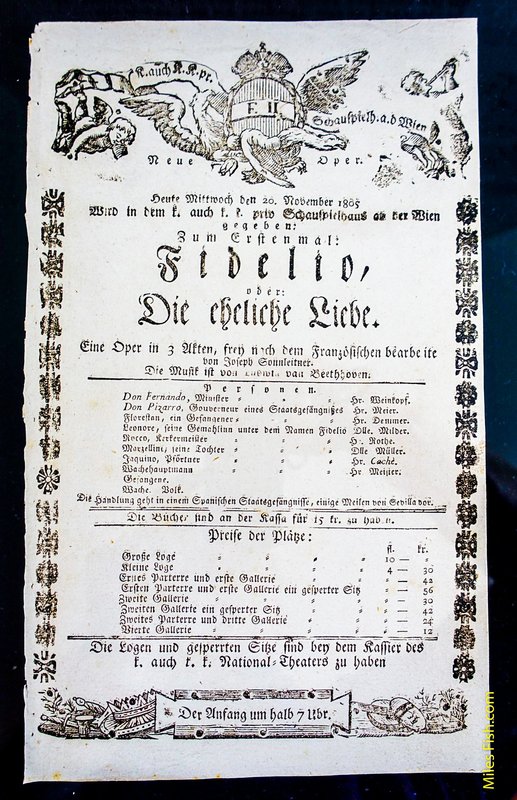 K. auch K. K. pr.
F. II
Schauspielh. a. d. Wien
Neue Oper.
Heute Mittwoch den 20. November 1805
Wird in dem k. auch k. k. priv Schauspielhaus an der Wien
gegeben:
Zum Erstenmal:
Fidelio,
oder:
Die eheliche Liebe.
Eine Oper in 3 Akten, frey nach dem Französischen bearbeitet
von Joseph Sonnleitner.
Die Musik ist von Ludwig van Beethhoven.
Personen.
Don Fernando, Minister Hr. Weinkopf.
Don Pizarro, Gouverneur eines Staatsgefängnißes Hr. Meier.
Florestan, ein Gefangener Hr. Demmer.
Leonore, seine Gemahlinn unter dem Namen Fidelio Dlle. Milder.
Rocco, Kerkermeister Hr. Rothe.
Marzelline, seine Tochter Dlle Müller.
Jaquino, Pförtner Hr. Caché.
Wachehauptmann Hr. Meister.
Gefangene.
Wache. Volk.
Die Handlung geht in einem Spanischen Staatsgefängnisse, einige Meilen von Sevilla vor.
Die Bücher sind an der Kassa für 15 kr. zu haben.
Preise der Plätze:
fl. kr.
Große Loge 10 —
Kleine Loge 4 — 30
Erstes Parterre und erste Gallerie — 42
Ersten Parterre und erste Gallerie ein gesperter Sitz — 56
Zweite Gallerie — 30
Zweiten Gallerie ein gesperter Sitz — 42
Zweites Parterre und dritte Gallerie — 24
Vierte Gallerie — 12
Die Logen und gesperrten Sitze sind bey dem Kassier des
k. auch k. k. National-Theaters zu haben
Der Anfang um halb 7 Uhr.
MilesFish.com